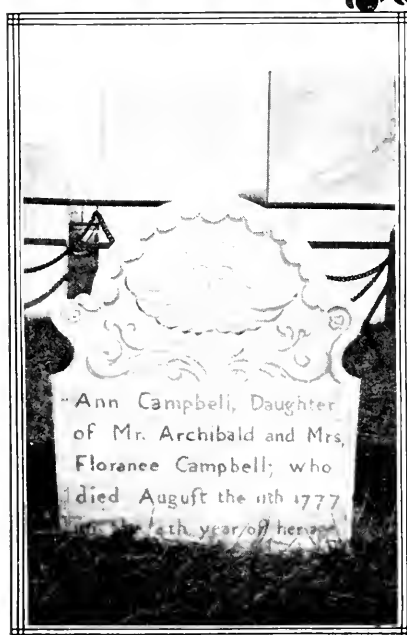 Ann Campbell, Daughter
of Mr. Archibald and Mrs,
Florance Campbell; who
died Auguſt the 11th 1777
the th year of her